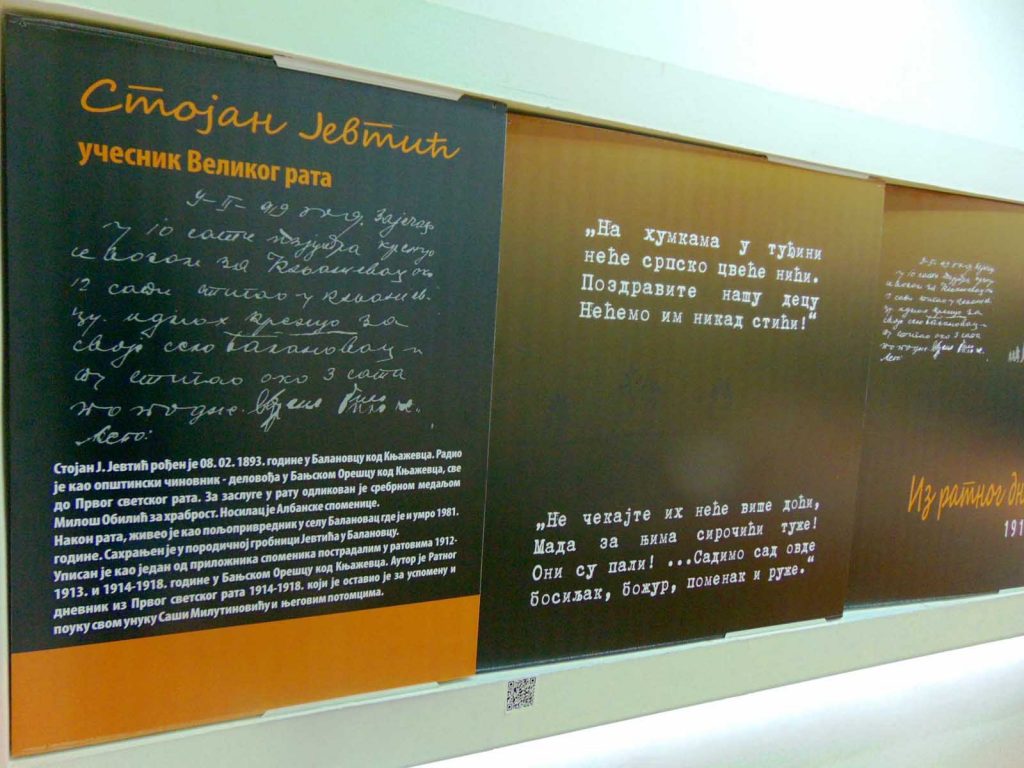 Стојан Јевтић
учесник Великог рата
год. Зајечар
у 10 сати
и возом за Књажевац око
12 сати стигао у Књажев-
цу. одмах крећо за
своје село Балановац и
стигао око 3 сата
по подне.
Стојан Ј. Јевтић рођен је 08. 02. 1893. године у Балановцу код Књажевца. Радио
је као општински чиновник - деловођа у Бањском Орешцу код Књажевца, све
до Првог светског рата. За заслуге у рату одликован је сребрном медаљом
Милош Обилић за храброст. Носилац је Албанске споменице.
Након рата, живео је као пољопривредник у селу Балановац где је и умро 1981.
године. Сахрањен је у породичној гробници Јевтића у Балановцу.
Уписан је као један од приложника споменика пострадалим у ратовима 1912-
1913. и 1914-1918. године у Бањском Орешцу код Књажевца. Аутор је Ратног
дневник из Првог светског рата 1914-1918. који је оставио је за успомену и
поуку свом унуку Саши Милутиновићу и његовим потомцима.
„На хумкама у туђини
неће српско цвеће нићи.
Поздравите нашу децу
Нећемо им никад стићи!“
„Не чекајте их неће више доћи,
Мада за њима сирочићи тухе!
Они су пали! ...Садимо сад овде
босиљак, божур, поменак и руже.“
Из ратног дн
191